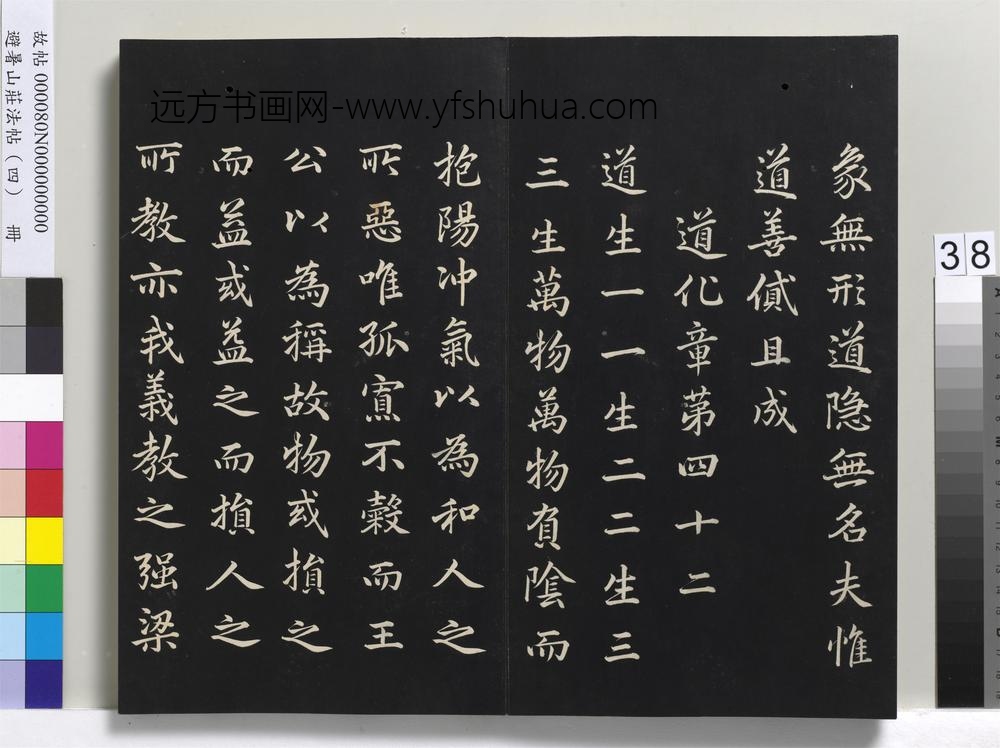 远方书画网-www.yfshuhua.com
象無形道隐無名夫惟
道善貸且成
道化章第四十二
道生一一生二二生三
三生萬物萬物負陰而
抱陽冲氣以為和人之
所惡唯孤寡不穀而王
公以為稱故物或損之
而益或益之而損人之
所教亦我義教之强梁
故帖 000080N000000000
避暑山莊法帖（四） 冊
38